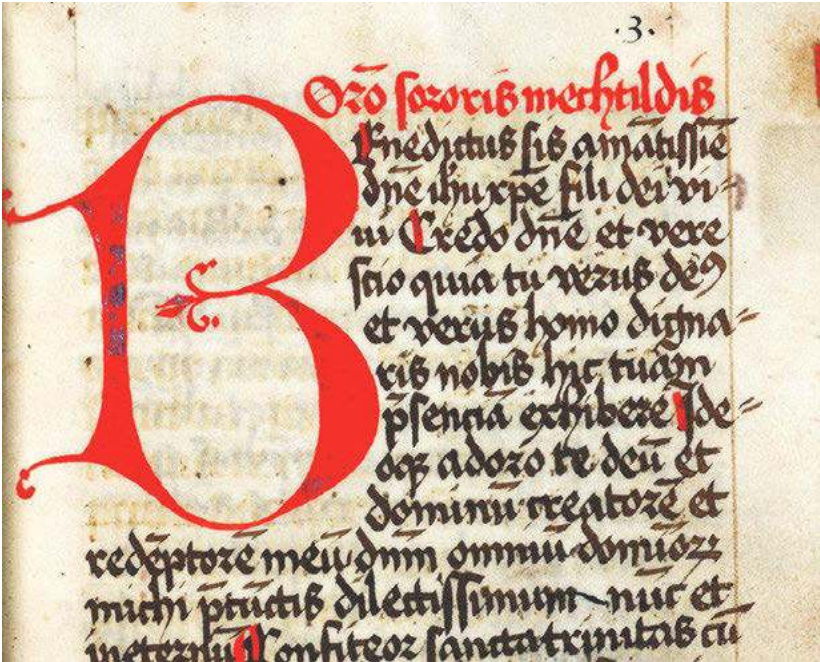 .3.
Orō sororis mechtildis
Benedictus sis amātissīe
dn̄e ihu xp̄e fili dei vi=
ui Credo dn̄e et vere
scio quia tu verus deꝰ
et verus homo digna=
ris nobis hic tuam
p̄senciā exhibere Ide=
oqꝫ adoro te deū et
dominū creatorē et
redēptorē meū dnm omniū domīoꝝ
michi dilectissimum nūc et
ineternū Confiteor sancta trinitas cū